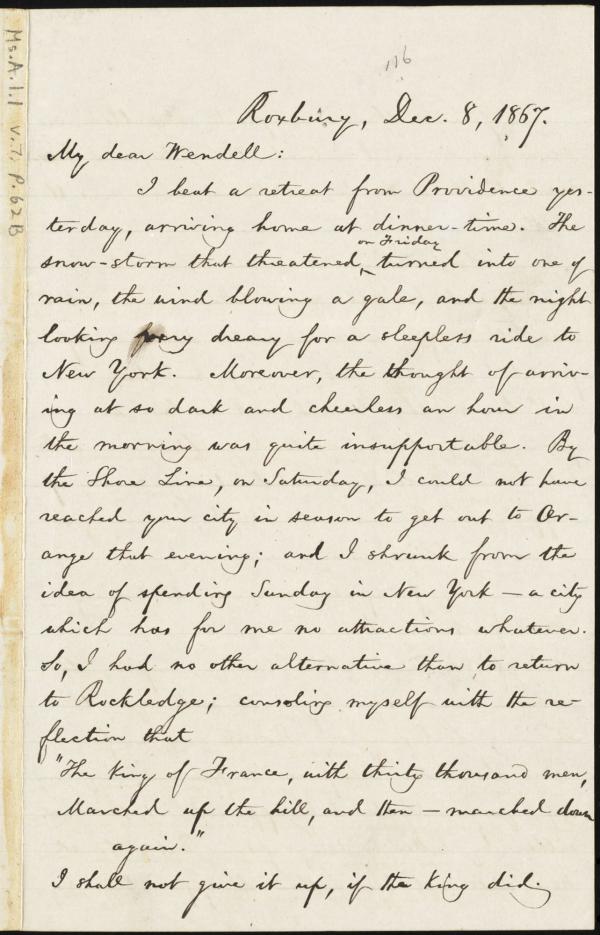 116
Roxbury, Dec. 8, 1867.
My dear Wendell:
I beat a retreat from Providence yes-
terday, arriving home at dinner-time. The
on Friday
snow-storm that threatened ‸ turned into one of
rain, the wind blowing a gale, and the night
looking very dreary for a sleepless ride to
New York. Moreover, the thought of arriv-
ing at so dark and cheerless an hour in
the morning was quite insupportable. By
the Shore Line, on Saturday, I could not have
reached your city in season to get out to Or-
ange that evening; and I shrunk from the
idea of spending Sunday in New York — a city
which has for me no attractions whatever.
So, I had no other alternative than to return
to Rockledge; consoling myself with the re-
flection that
"The King of France, with thirty thousand men,
Marched up the hill, and then — marched down
again."
I shall not give it up, if the King did.
Ms. A. 1. 1 v. 7, p. 62B